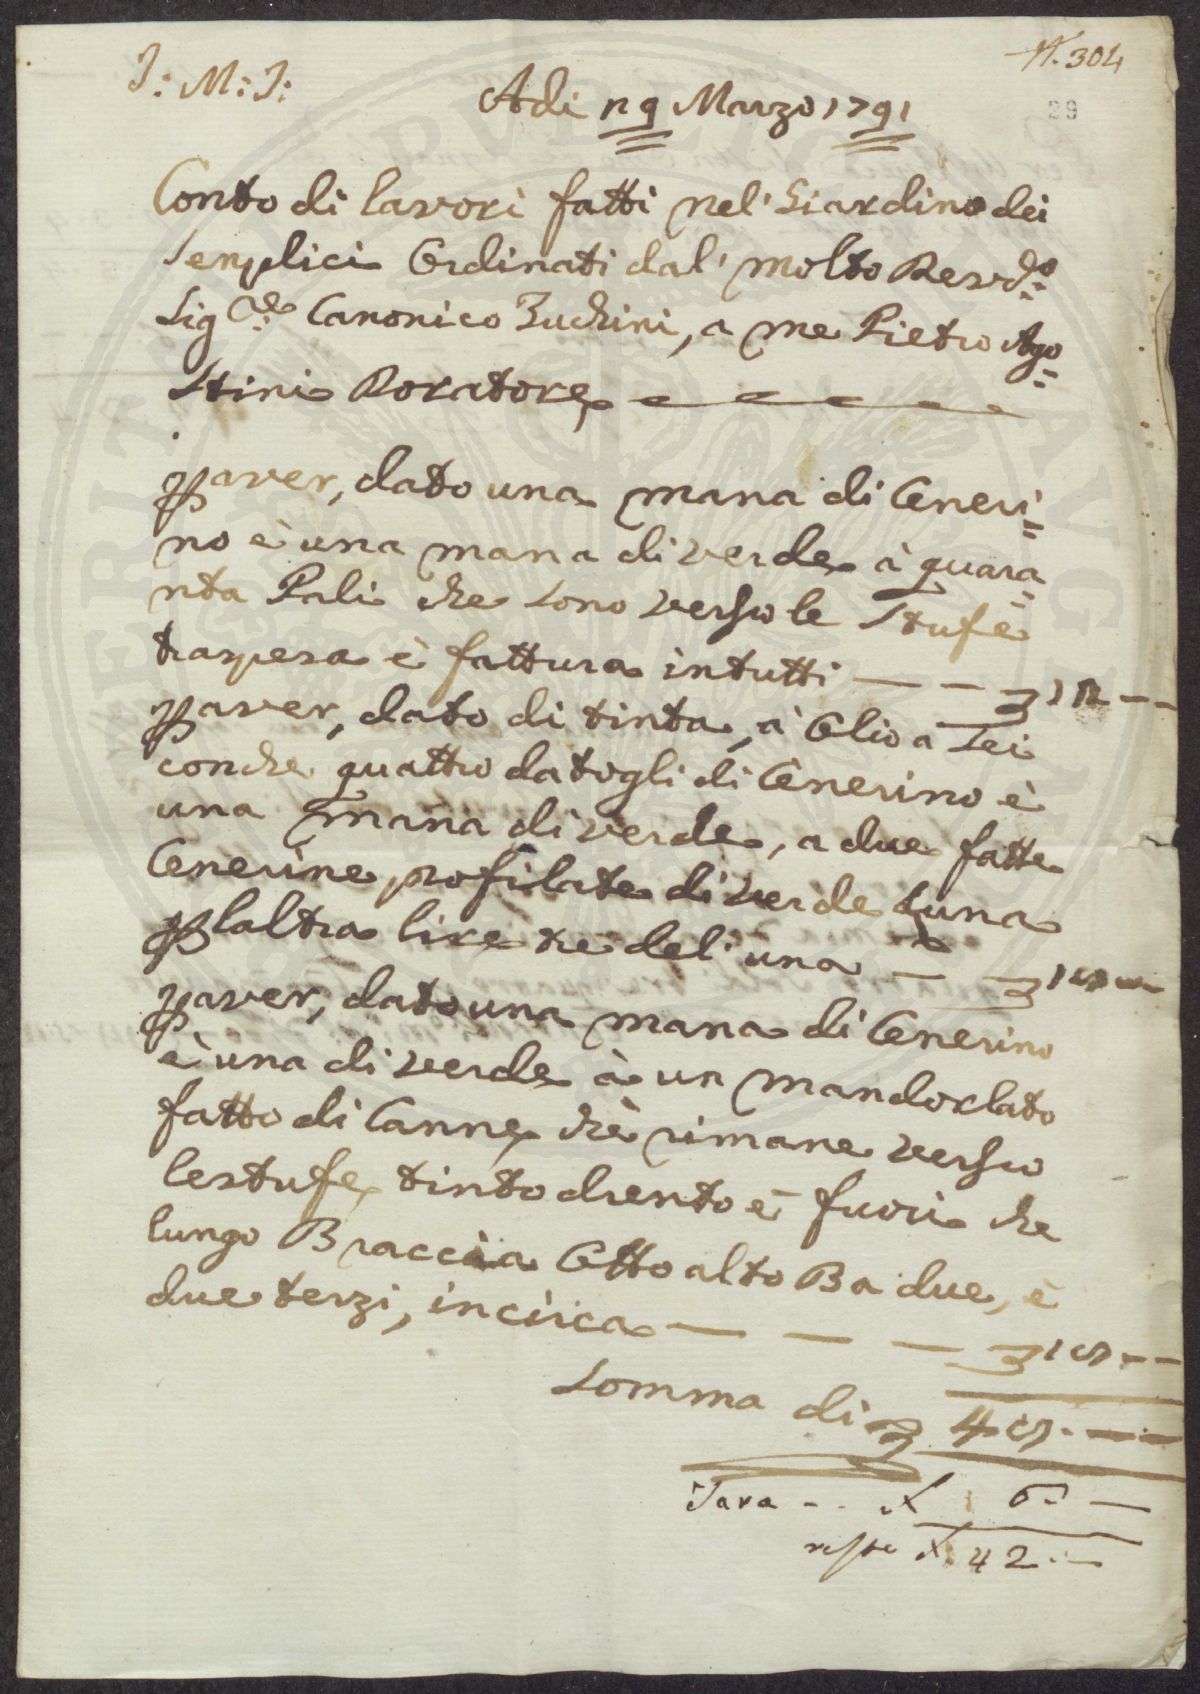 J: M: J:
N. 304
Adi 29 Marzo 1791
29
Conto di lavori fatti nel' Giardino dei
Semplici Ordinati dal' molto Revdo:
Sigre: Canonico Zuchini, a me Pietro Ago=
stini Doratore
p aver, dato una mana di Ceneri=
no è una mana di verde à quara=
nta Pali che sono verso le stufe
traspesa è fattura in tutti — — 12 — —
p aver, dato di tinta, à Olio a Sei
conche quattro datogli di Cenerino è
una mana di verde, a due fatte
Cenerine profilate di verde luna
p laltra lire tre del' una — 18 —
p aver, dato una mana di Cenerino
è una di verde à un mandorlato
fatto di Canne, chè rimane verso
lestufe, tinto drento è fuori che
lungo Braccia Otto alto Ba due, è
due terzi, in circa — — — 18 - -
Somma di 48. — —
Tara - - . 6. —
resta 42. —